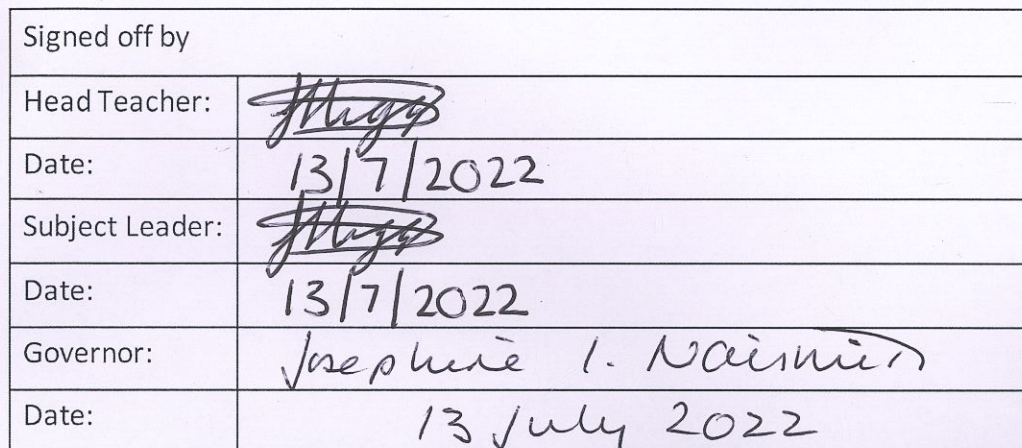 Signed off by
Head Teacher:
Date: 13/7/2022
Subject Leader:
Date: 13/7/2022
Governor: Josephine I. Naismith
Date: 13 July 2022